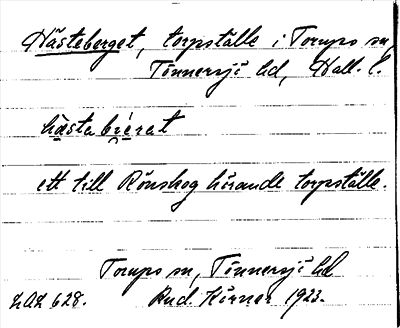 Hästeberget, torpställe i Torups sn,
Tönnersjö hd, Hall. l.
hästabrerat
ett till Rönskog hörande torpställe.
Torups sn, Tönnersjö hd
LAL 628. Rud. Hörner 1923.